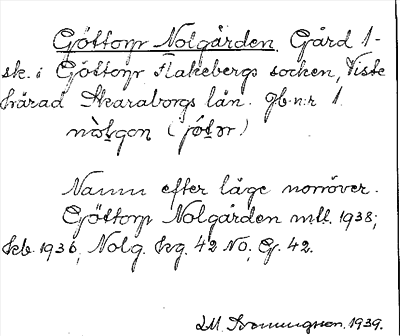 Göttorp Nolgården. Gård 1-
sk. i Göttorp Flakebergs socken, Viste
härad Skaraborgs län. Gb.n:r 1.
nòlgon (jötər)
Namn efter läge norröver.
Göttorp Nolgården mtl. 1938;
Jeb. 1936, Nolg. Hrg. 42 No, G. 42.
1939.